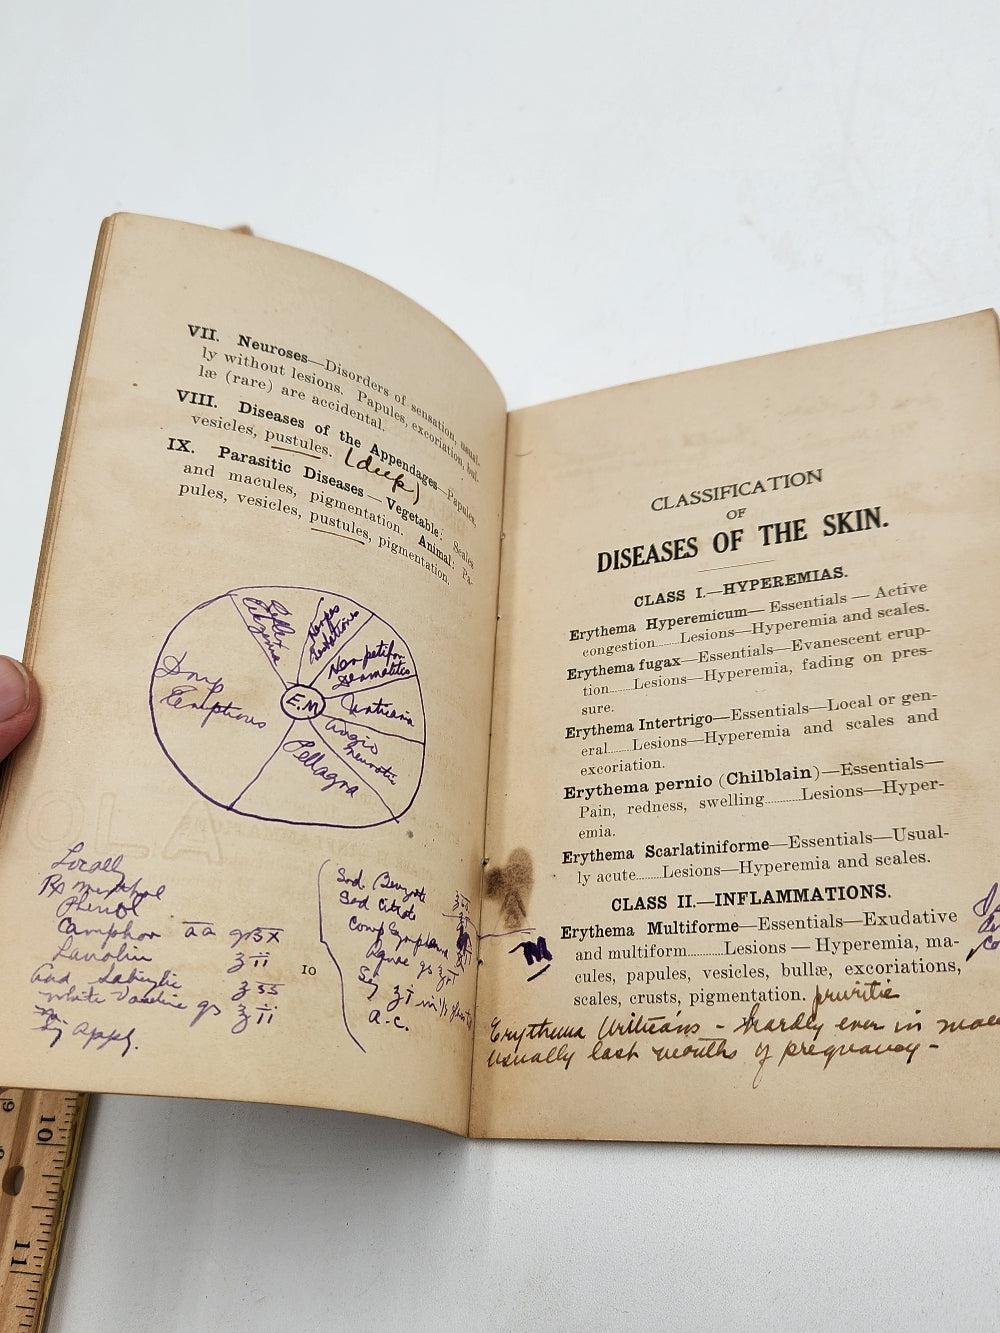 VII. Neuroses—Disorders of sensation, usual-
ly without lesions. Papules, excoriation, bul-
læ (rare) are accidental.
VIII. Diseases of the Appendages—Papules,
vesicles, pustules. (deep)
IX. Parasitic Diseases—Vegetable: Scales
and macules, pigmentation. Animal: Pa-
pules, vesicles, pustules, pigmentation.
Herpes
Dermatitis
Urticaria
Angio
neurotic
Pellagra
Drug
Eruptions
E.M
Locally
Rx Menthol
Phenol
Camphor āā grs x
Lanolin ʒ ii
And Salicylic ʒ ss
White Vaseline qs ʒ ii
M.
Sig Apply.
Sod Benzoate
Sod Citrate
Comp Syr
Aquae qs
Sig ʒ i in ½ glass
a.c.
10
CLASSIFICATION
OF
DISEASES OF THE SKIN.
CLASS I.—HYPEREMIAS.
Erythema Hyperemicum—Essentials—Active
congestion......Lesions—Hyperemia and scales.
Erythema fugax—Essentials—Evanescent erup-
tion......Lesions—Hyperemia, fading on pres-
sure.
Erythema Intertrigo—Essentials—Local or gen-
eral......Lesions—Hyperemia and scales and
excoriation.
Erythema pernio (Chilblain)—Essentials—
Pain, redness, swelling.........Lesions—Hyper-
emia.
Erythema Scarlatiniforme—Essentials—Usual-
ly acute......Lesions—Hyperemia and scales.
CLASS II.—INFLAMMATIONS.
M
Erythema Multiforme—Essentials—Exudative
and multiform.........Lesions—Hyperemia, ma-
cules, papules, vesicles, bullæ, excoriations,
scales, crusts, pigmentation. pruritis
Erythema - Hardly ever in
usually last months of pregnancy -
10
11